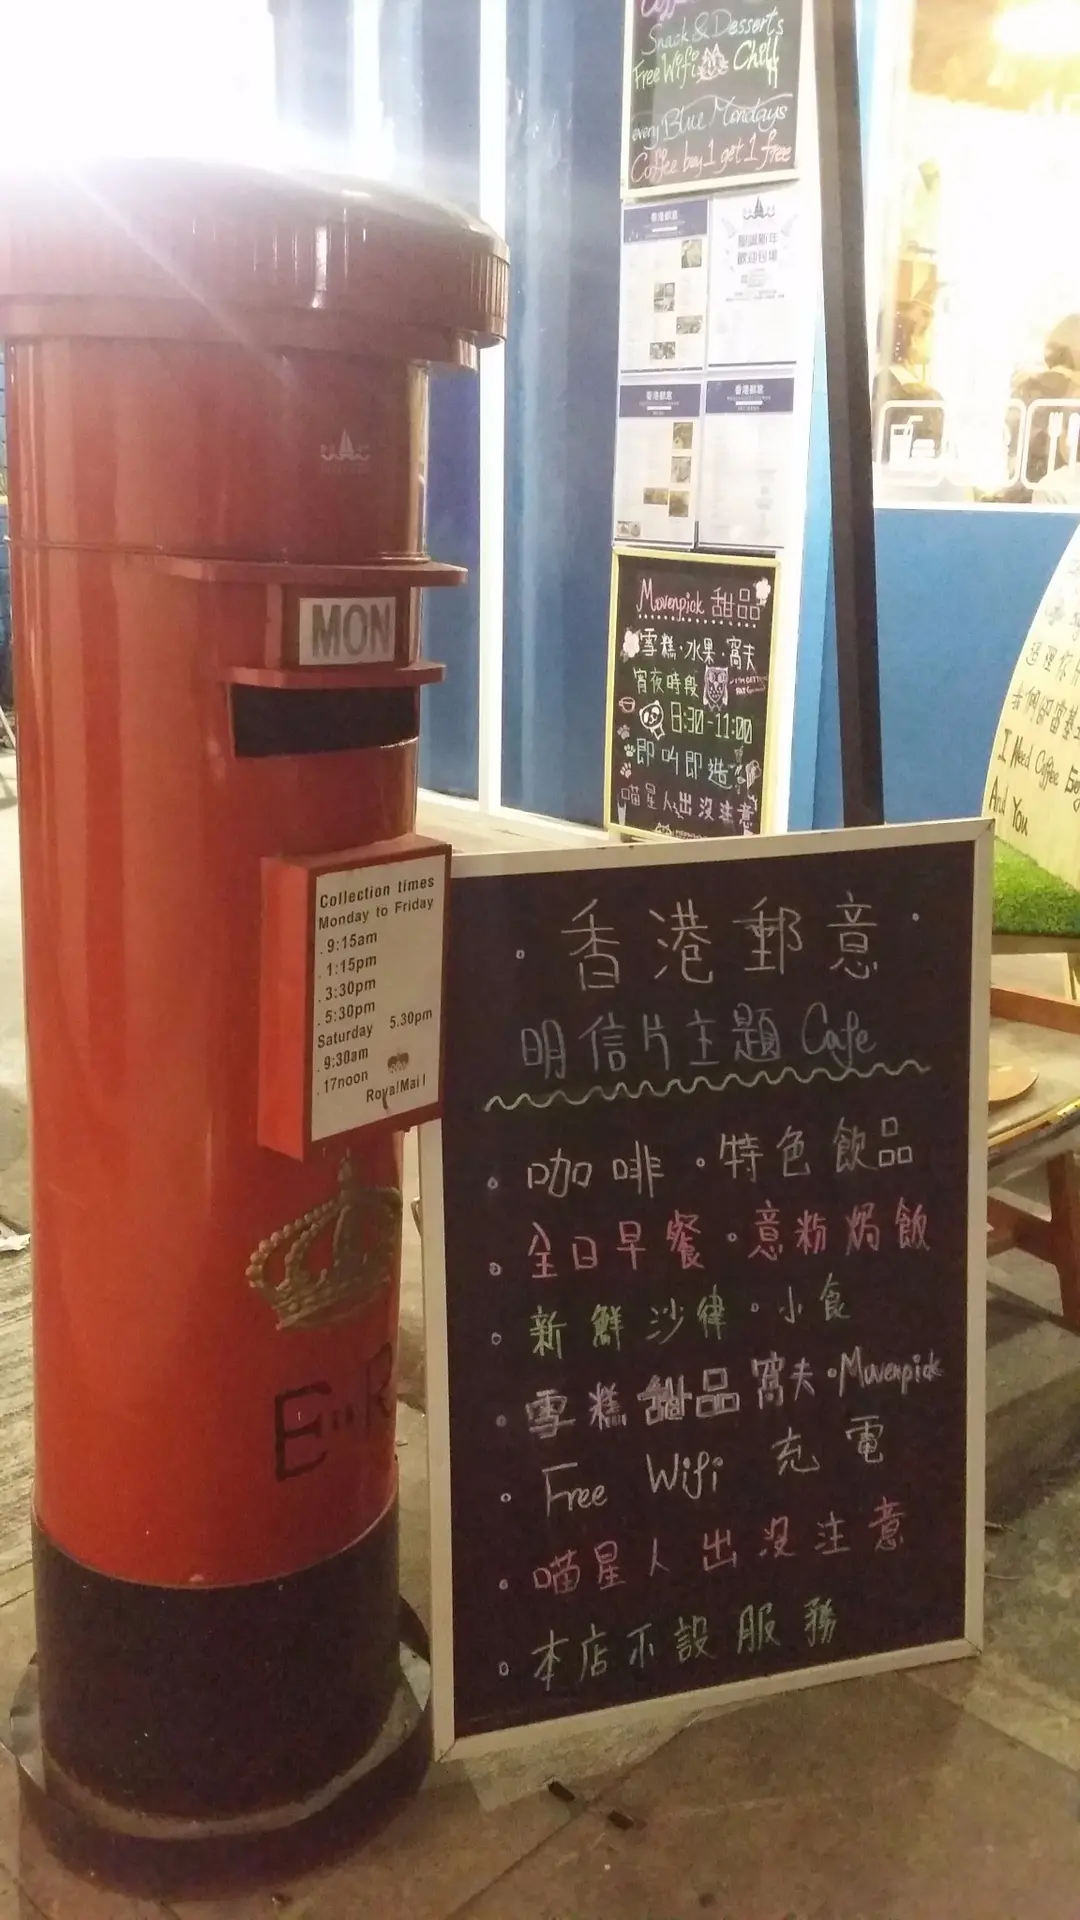 Snack & Desserts
Free Wifi Chill
every Blue Mondays
Coffee buy 1 get 1 free
香港郵意
聖誕新年
歡迎包場
香港郵意
香港郵意
MON
Movenpick 甜品
雪糕·水果·窩夫
宵夜時段
8:30-11:00
即叫即造
喵星人出沒注意
I Need Coffee
And You
Collection times
Monday to Friday
. 9:15am
. 1:15pm
. 3:30pm
. 5:30pm
Saturday 5.30pm
. 9:30am
. 17noon
Royal Mail
E II R
香港郵意
明信片主題 Cafe
咖啡 · 特色飲品
全日早餐 · 意粉焗飯
新鮮沙律 · 小食
雪糕甜品窩夫 · Movenpick
Free Wifi 充電
喵星人出沒注意
本店不設服務